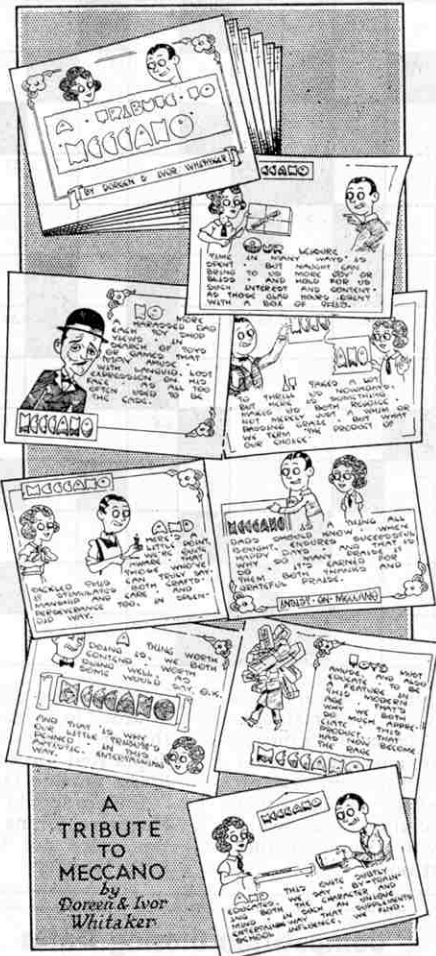 A · TRIBUTE · TO
MECCANO
BY DOREEN & IVOR WHITAKER
MECCANO
OUR LEISURE
TIME IN MANY WAYS IS
SPENT · BUT NAUGHT CAN
BRING TO US MORE JOY OR
BLISS · AND HOLD FOR US
SUCH INTEREST AND CONTENT ·
AS THOSE GLAD HOURS SPENT
WITH A BOX OF
NO MORE
A HARASSED DAD
EACH TOY SHOP
VIEWS · IN
SEARCH OF TOYS
OR GAMES THAT
MAY AMUSE ·
WITH LANGUID, LOST
EXPRESSION ON HIS
FACE · AS ALL TOO
OFT USED TO BE
THE CASE.
MECCANO
IT TAKES A LOT
TO THRILL US NOWADAYS.
BUT HERE IS SOMETHING
MAKES US BOTH REJOICE ·
NOT MERELY JUST A WHIM OR
PASSING CRAZE · BUT WHAT
WE TERM THE PRODUCT OF
OUR CHOICE.
MECCANO
AND
HERE'S A
LITTLE POINT,
WE'RE QUITE
AWARE · THAT
THOSE WHO'VE
TACKLED THIS CAN TRULY SAY.
IT STIMULATES BOTH CRAFTS-
MANSHIP AND CARE · AND
PERSEVERANCE TOO, IN SPLEN-
DID WAY.
MECCANO IS A THING ALL
DADS SHOULD KNOW · WHICH
BOUGHT, ENSURES SUCCESSFUL
HAPPY DAYS · AND THAT IS
WHY SO MANY PRAISE IT
SO · IT'S EARNED FOR
THEM BOTH THANKS AND
GRATEFUL PRAISE.
INSIST · ON · MECCANO
A THING WORTH
DOING IS, WE BOTH
CONTEND · WORTH
DOING WELL,
SOME WOULD SAY, O.K.
MECCANO
AND THAT IS WHY
OUR LITTLE TRIBUTE'S
PENNED · IN THIS
ARTISTIC, ENTERTAINING
WAY.
TOYS MUST
AMUSE, AND
EDUCATE TOO
A FEATURE OF
THIS MODERN
AGE · THAT'S
WHY WE BOTH
SO MUCH APPRE-
CIATE · THIS
PRODUCT THAT
HAS NOW BECOME
THE RAGE
MECCANO
MECCANO
AND THIS QUITE SUBTLY
EDUCATES, WE SAY · BY TRAIN-
ING BOTH THE CHARACTER AND
MIND · IN SUCH AN UNIQUE
ENTERTAINING WAY · THAT SUPPLEMENTS
SCHOOL INFLUENCE, WE FIND.
A
TRIBUTE
TO
MECCANO
by
Doreen & Ivor
Whitaker